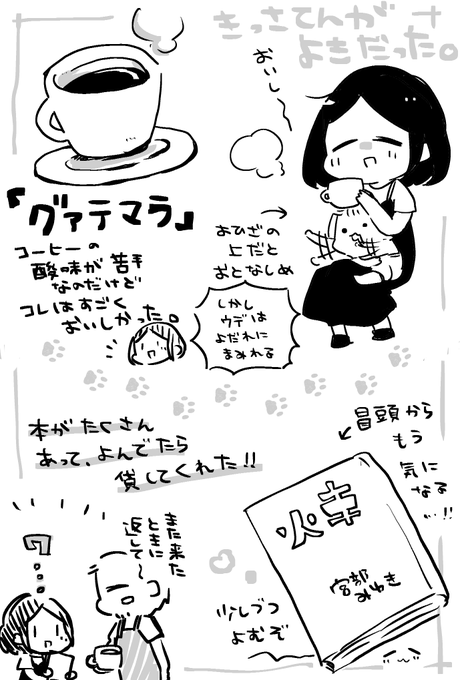 きっさてんが
よきだった。
おいし〜
『グァテマラ』
コーヒーの
酸味が苦手
なのだけど
コレはすごく
おいしかった。
→
おひざの
上だと
おとなしめ
しかし
ウデは
よだれに
まみれる
本がたくさん
あって、よんでたら
貸してくれた!!
また来た
ときに
返して〜
冒頭から
もう
気に
なる
…!!
火車
宮部
みゆき
少しづつ
よむぞ